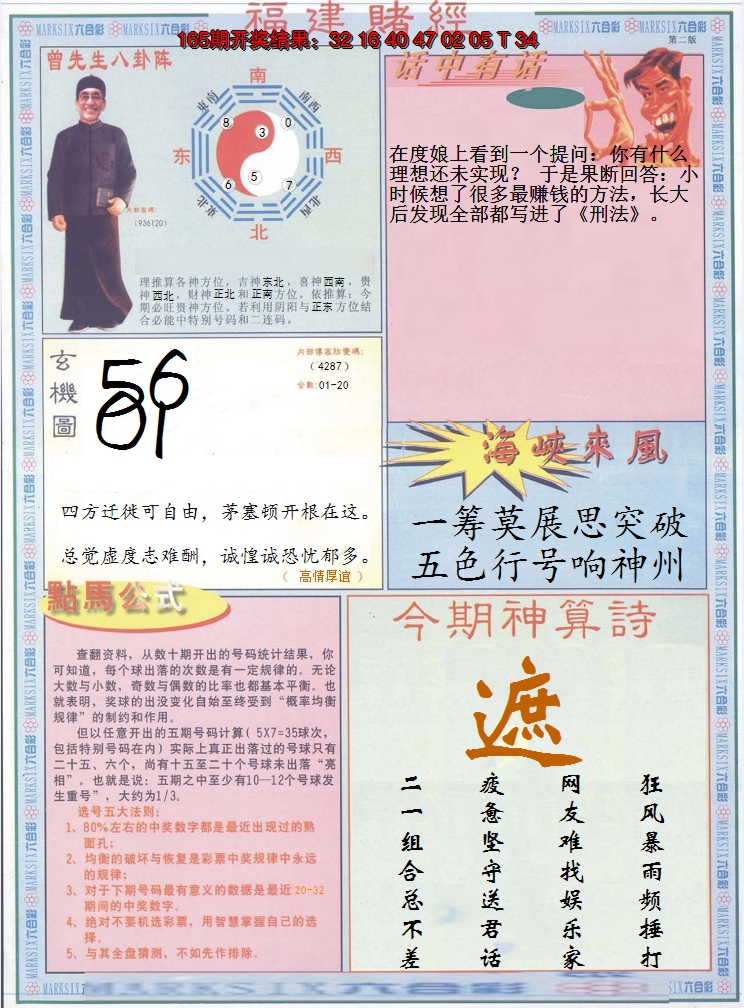 福建賭經
165期开奖结果：32 16 40 47 02 05 T 34
第二版
MARKSIX六合彩
曾先生八卦阵
南
东南
西南
东
西
东北
西北
北
8
3
0
6
5
7
内部密碼:
(936120)
理推算各神方位，吉神东北，喜神西南，贵
神西北，财神正北和正南方位。依推算：今
期必旺贵神方位。若利用阴阳与正东方位结
合必能中特别号码和二连码。
话中有话
在度娘上看到一个提问：你有什么
理想还未实现？ 于是果断回答：小
时候想了很多最赚钱的方法，长大
后发现全部都写进了《刑法》。
玄機圖
内部傳容防密碼:
(4287)
合数:01-20
四方迁徙可自由，茅塞顿开根在这。
总觉虚度志难酬，诚惶诚恐忧郁多。
（ 高情厚谊 ）
海峽來風
一筹莫展思突破
五色行号响神州
點馬公式
查翻资料，从数十期开出的号码统计结果，你
可知道，每个球出落的次数是有一定规律的。无论
大数与小数，奇数与偶数的比率也都基本平衡。也
就表明，奖球的出没变化自始至终受到“概率均衡
规律”的制约和作用。
但以任意开出的五期号码计算( 5X7=35球次，
包括特别号码在内) 实际上真正出落过的号球只有
二十五、六个，尚有十五至二十个号球未出落“亮
相”。也就是说：五期之中至少有10—12个号球发
生重号”，大约为1/3。
选号五大法则：
1、80%左右的中奖数字都是最近出现过的熟
面孔；
2、均衡的破坏与恢复是彩票中奖规律中永远
的规律；
3、对于下期号码最有意义的数据是最近20-32
期间的中奖数字。
4、绝对不要机选彩票，用智慧掌握自己的选
择。
5、与其全盘猜测，不如先作排除。
今期神算詩
遮
狂风暴雨频捶打
网友难找娱乐家
疲惫坚守送君话
二一组合总不差